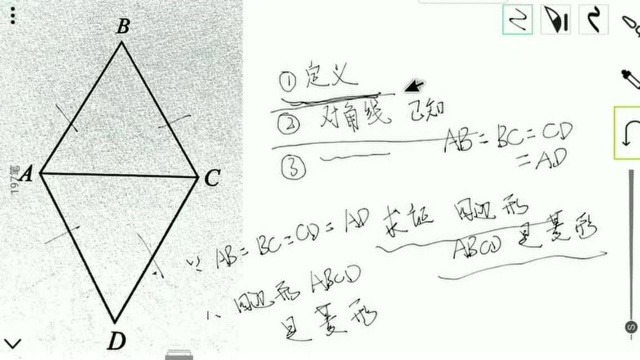 B
A
C
D
197笔
① 定义
② 对角线 已知
AB = BC = CD
= AD
③
∵ AB = BC = CD = AD 求证 四边形
ABCD 是菱形
∴ 四边形 ABCD
是菱形